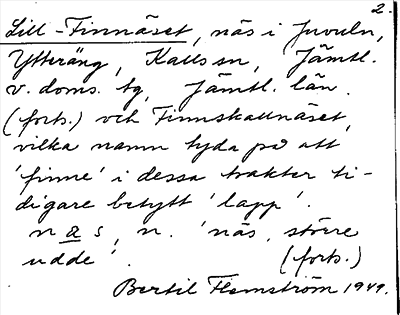 2.
Lill-Finnäset, näs i Juvuln,
Ytteräng, Kalls sn, Jämtl.
v. doms. tg, Jämtl. län.
(forts.) och Finnskallnäset,
vilka namn tyda på att
'finne' i dessa trakter ti-
digare betytt 'lapp'.
nas, n. 'näs, större
udde'. (forts.)
Bertil Flemström 1949.